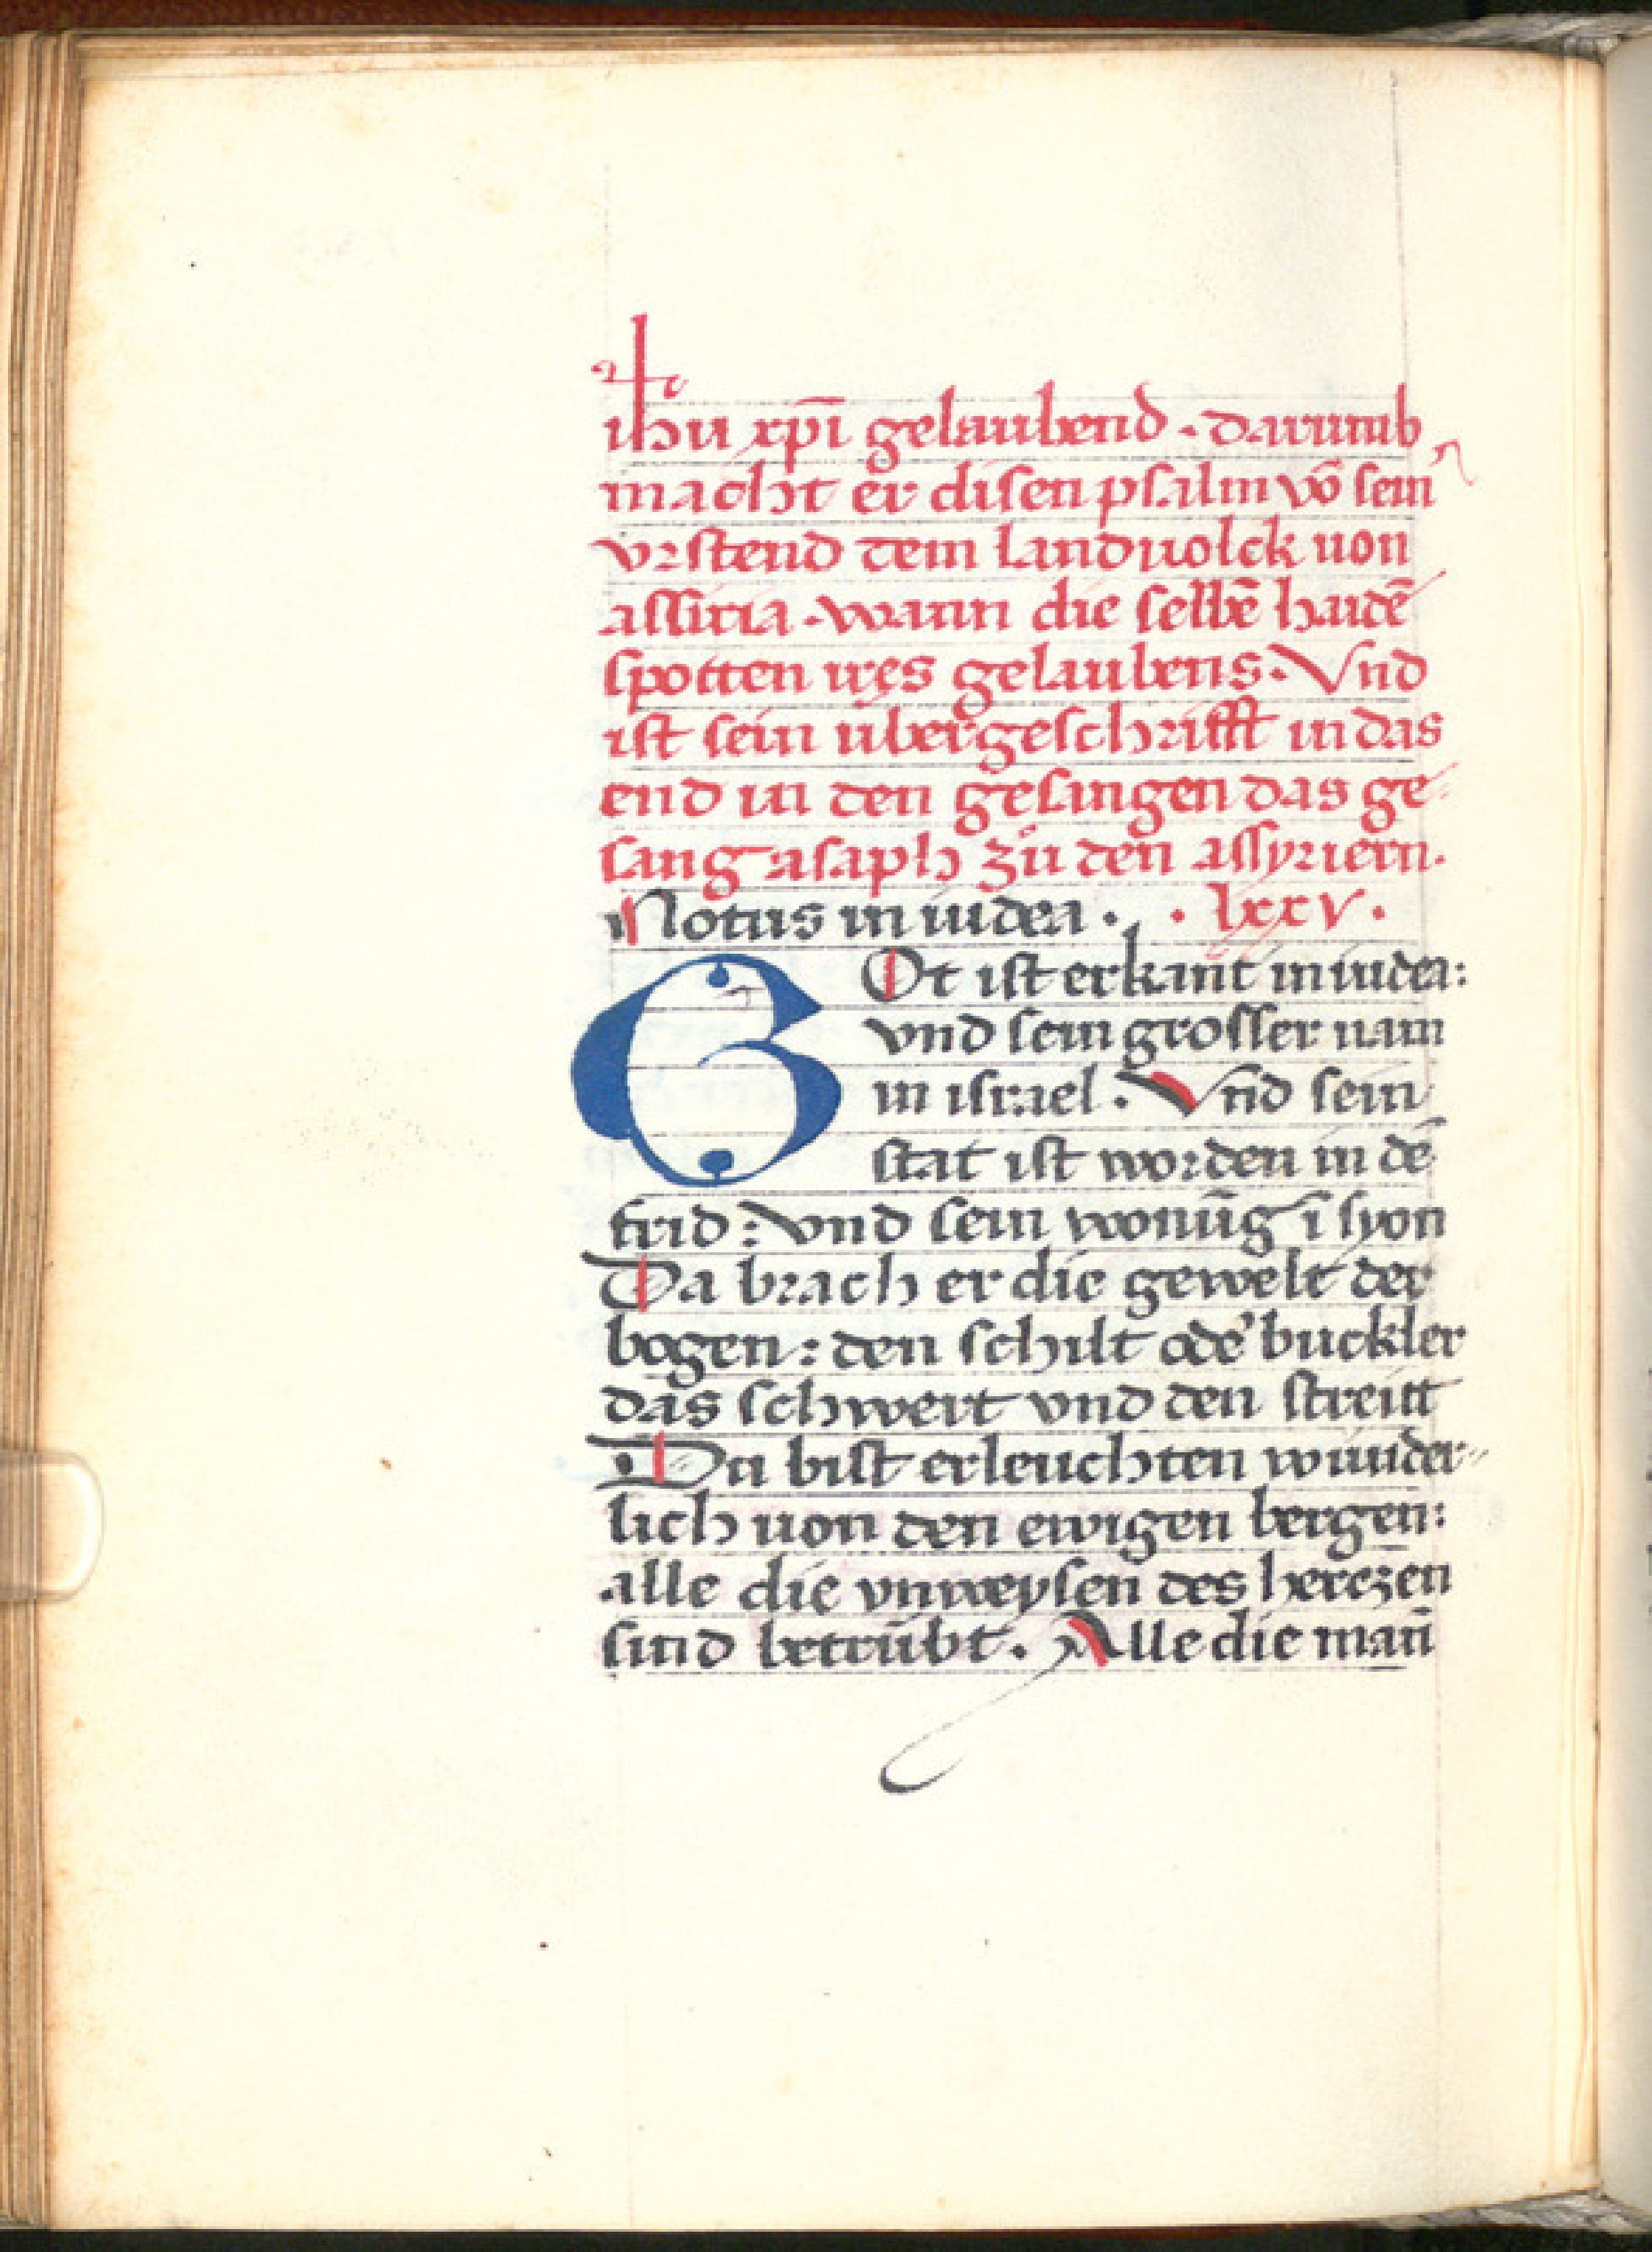 ihu xp̄i gelaubend · darumb
macht er disen psalm vō sein
vrstend dem landuolck uon
assiria · wann die selbē haidē
spotten irꝫ gelaubens · Vnd
ist sein übergeschrifft in das
end in den gesingen das ge
sang asaph zů den assyriern ·
Notus in iudea · · lxxv ·
GOt ist erkant in iudea :
vnd sein grosser nam
in israel · Vnd sein
stat ist worden in dē
frid : vnd sein wonūg ī syon
Da brach er die gewelt der
bogen : den schilt odeʼ buckler
das schwert vnd den streitt
· Du bist erleuchten wunder
lich uon den ewigen bergen :
alle die vnweysen des herczen
sind betrübt · Alle die man̄